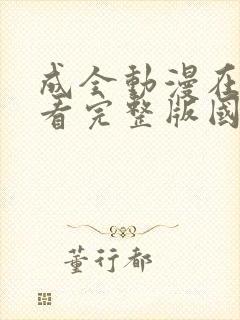 成全動漫在
看完整版國
董行都